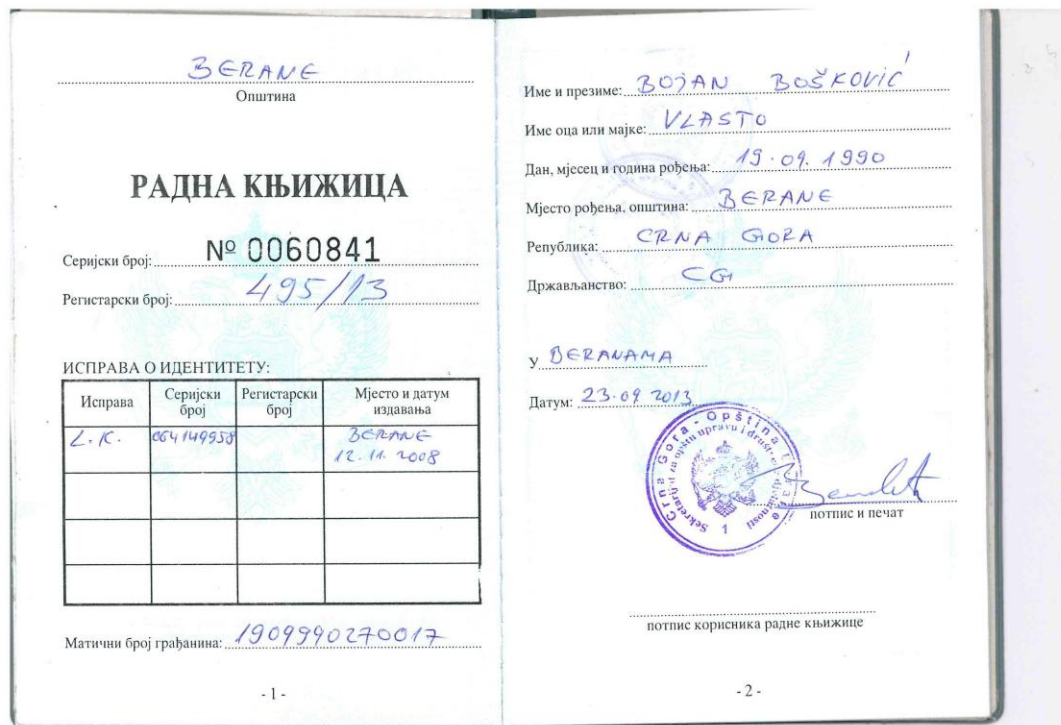 BERANE
Општина
РАДНА КЊИЖИЦА
Серијски број: № 0060841
Регистарски број: 495/13
ИСПРАВА О ИДЕНТИТЕТУ:
Исправа Серијски број Регистарски број Мјесто и датум издавања
L.K. 064149958 BERANE
12.11.2008
Матични број грађанина: 1909990270017
- 1 -
Име и презиме: BOJAN BOŠKOVIĆ
Име оца или мајке: VLASTO
Дан, мјесец и година рођења: 19.09.1990
Мјесто рођења, општина: BERANE
Република: CRNA GORA
Држављанство: CG
У BERANAMA
Датум: 23.09 2013
Crna Gora - Opština
Sekretarijat za opštu upravu i društ.
1
потпис и печат
потпис корисника радне књижице
- 2 -